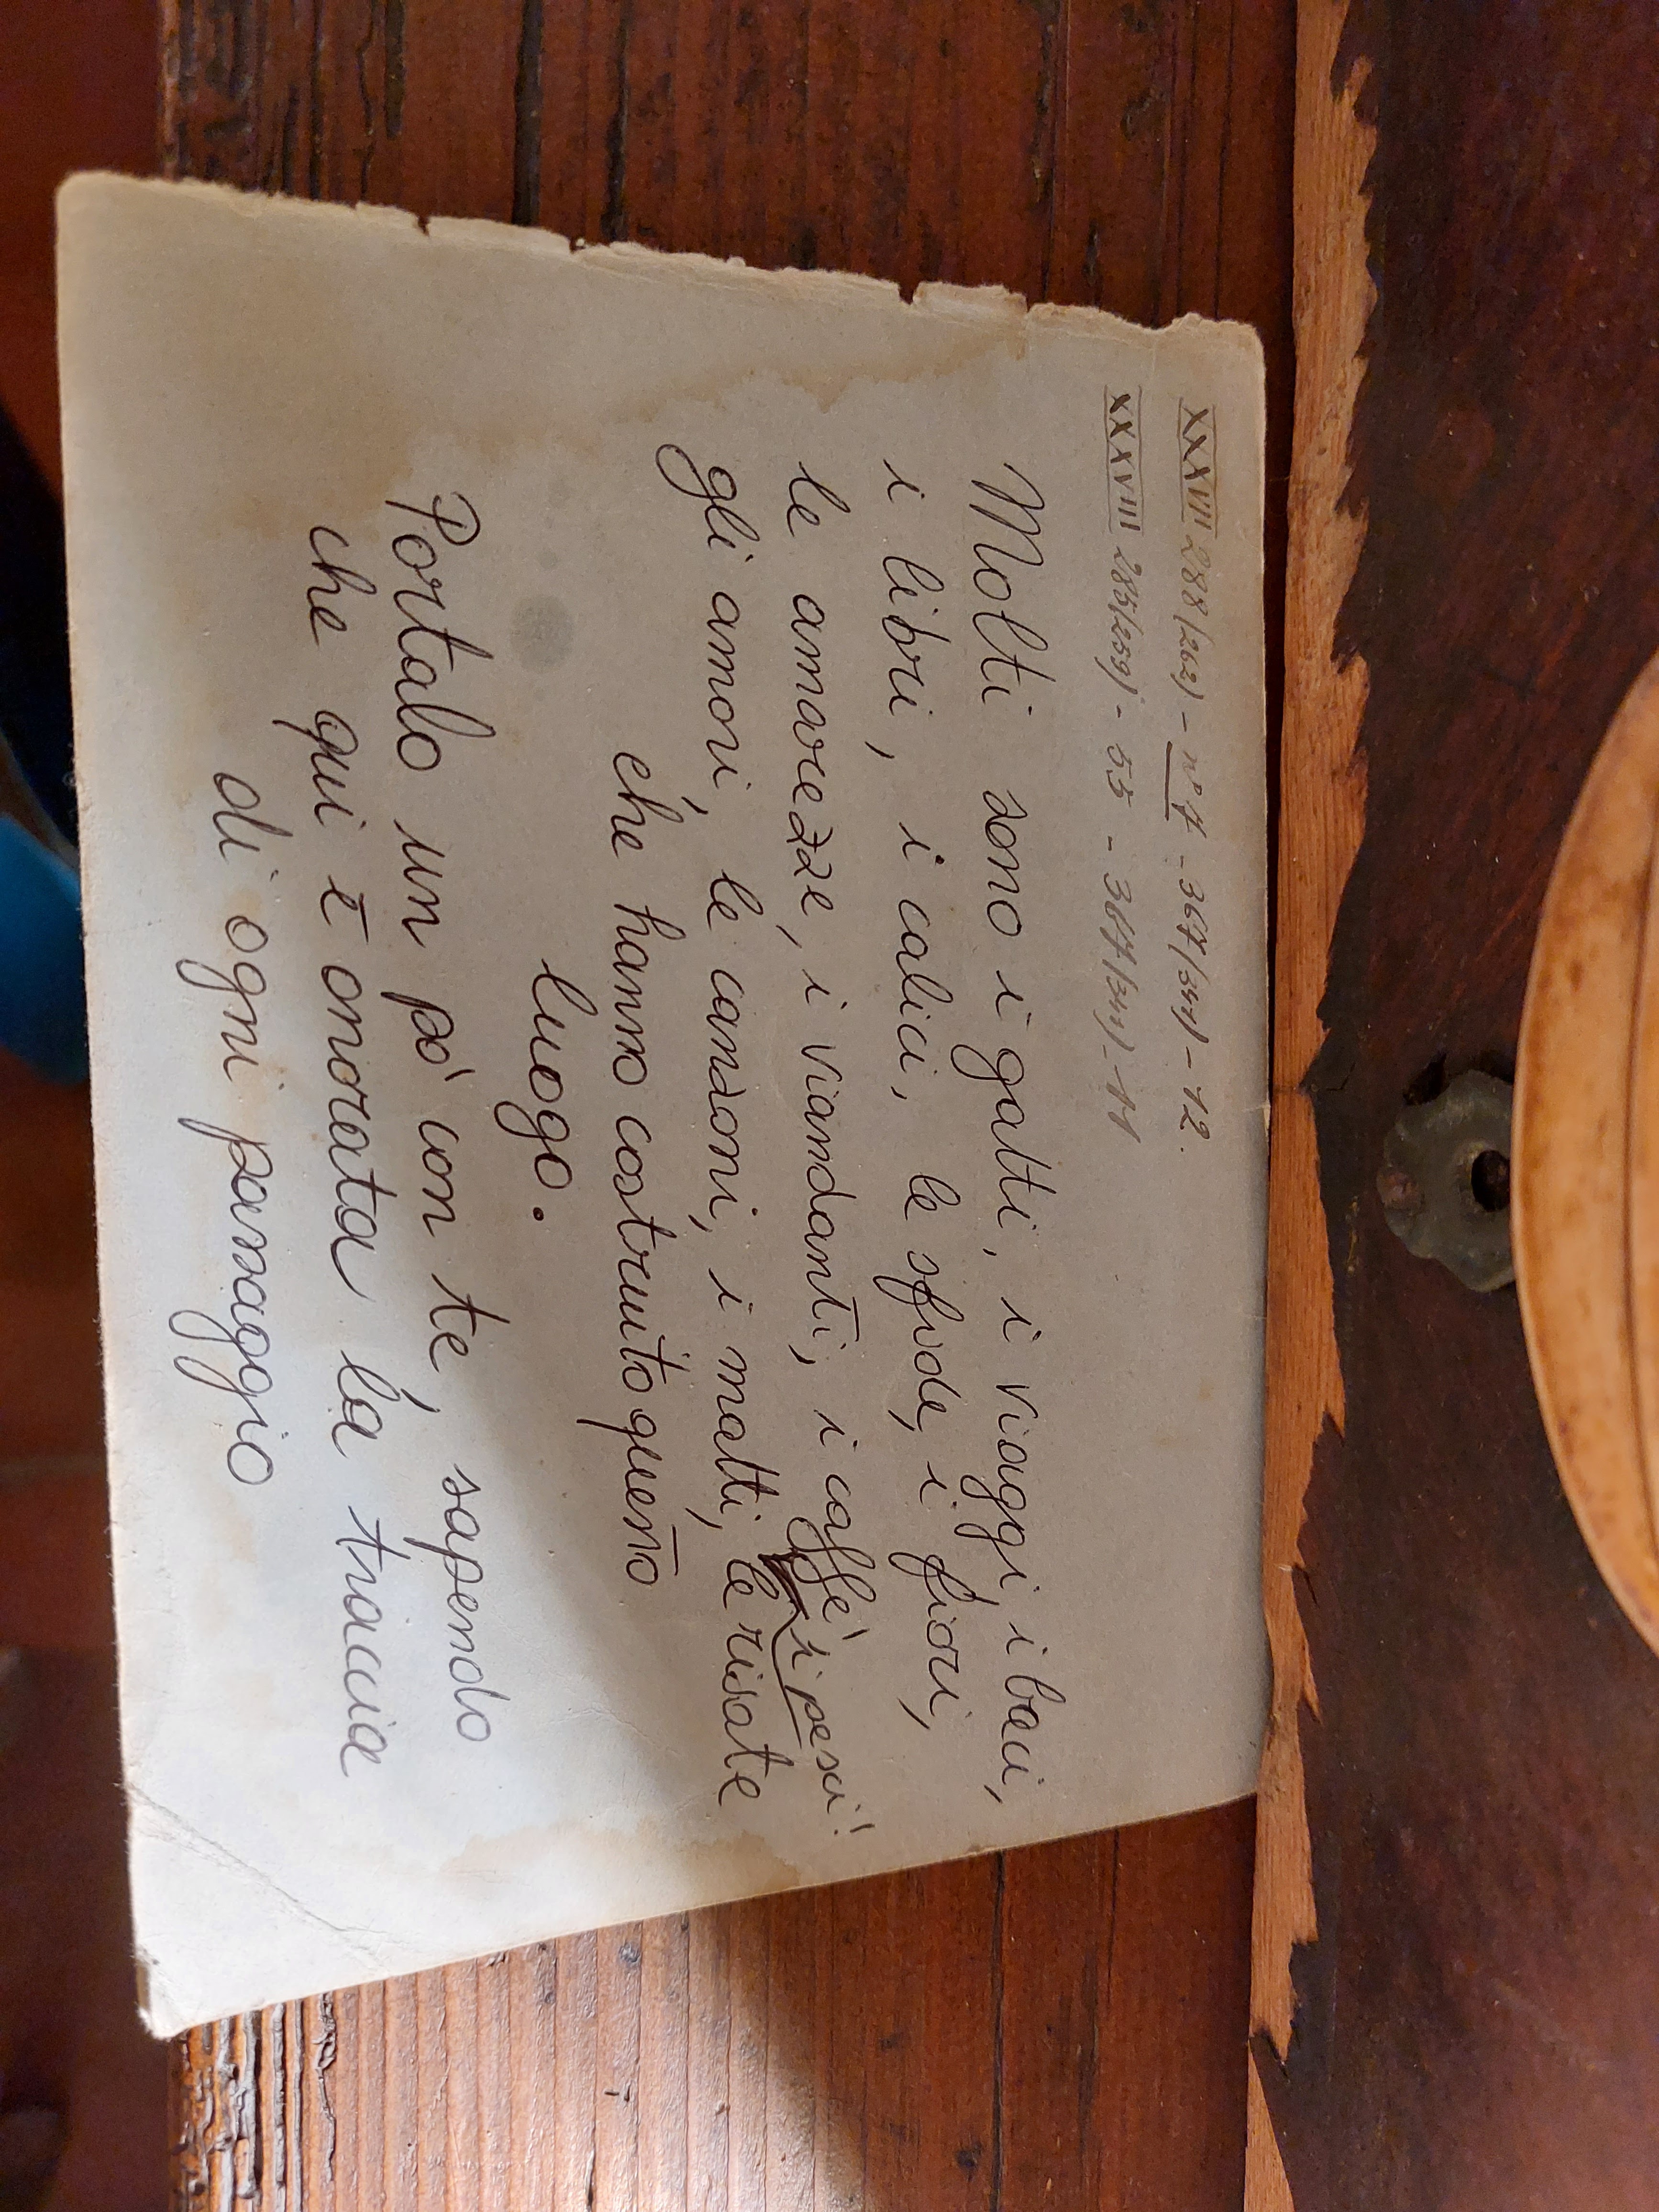 XXXVIII 288/262) - n° 4 - 364/341) - 12.
XXXVIII 285/259) - 55 - 364/341) - 11
Molti sono i gatti, i viaggi, i baci,
i libri, i calici, le sfide, i fiori,
le amarezze, i viandanti, i caffè i pesci!
gli amori, le canzoni, i matti, le risate
che hanno costruito questo
luogo.
Portalo un pò con te, sapendo
che qui è onorata la traccia
di ogni passaggio